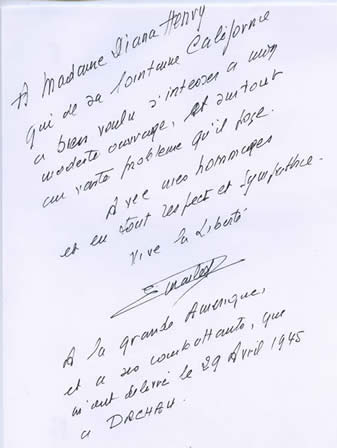 A Madame Diana Henry
qui de sa lointaine Californie
a bien voulu s'interesser a mon
modeste ouvrage, et surtout
au vaste probleme qu'il pose.
Avec mes hommages
et en tout respect et sympathie.
Vive la Liberté
A la grande Amerique,
et a ses combattants, qui
m'ont delivré le 29 Avril 1945
a DACHAU.